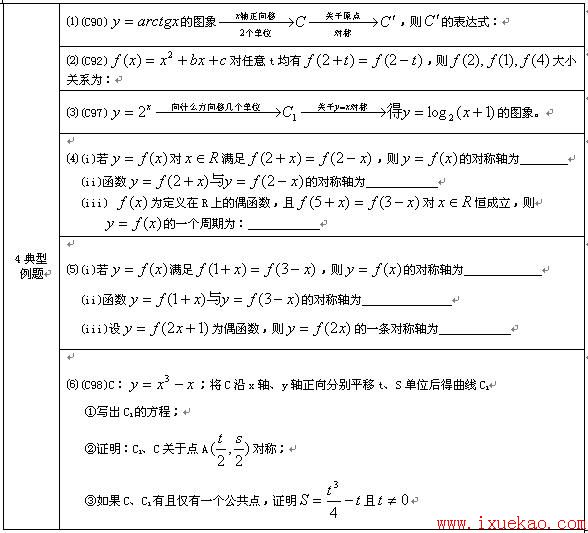 (1)(C90) y = arctgx的图象 x轴正向移2个单位→ C 关于原点对称→ C′,则C′的表达式:
(2)(C92) f(x) = x² + bx + c 对任意 t 均有 f(2+t) = f(2−t),则 f(2), f(1), f(4) 大小
关系为:
(3)(C97) y = 2ˣ 向什么方向移几个单位→ C₁ 关于y=x对称→ 得y = log₂(x+1)的图象。
(4)(i)若 y = f(x)对 x∈R 满足 f(2+x) = f(2−x),则 y = f(x)的对称轴为________
(ii)函数 y = f(2+x)与y = f(2−x)的对称轴为____________
(iii) f(x)为定义在 R 上的偶函数,且 f(5+x) = f(3−x)对 x∈R 恒成立,则
y = f(x)的一个周期为:____________
4 典型
例题
(5)(i)若 y = f(x)满足 f(1+x) = f(3−x),则 y = f(x)的对称轴为_____________
(ii)函数 y = f(1+x)与y = f(3−x)的对称轴为_______________
(iii)设 y = f(2x+1)为偶函数,则 y = f(2x)的一条对称轴为____________
(6)(C98)C: y = x³ − x;将 C 沿 x 轴、y 轴正向分别平移 t、S 单位后得曲线 C₁
①写出 C₁的方程;
②证明:C₁、C 关于点 A(t/2, s/2)对称;
③如果 C、C₁有且仅有一个公共点,证明 S = t³/4 − t 且 t ≠ 0
www.ixuekao.com